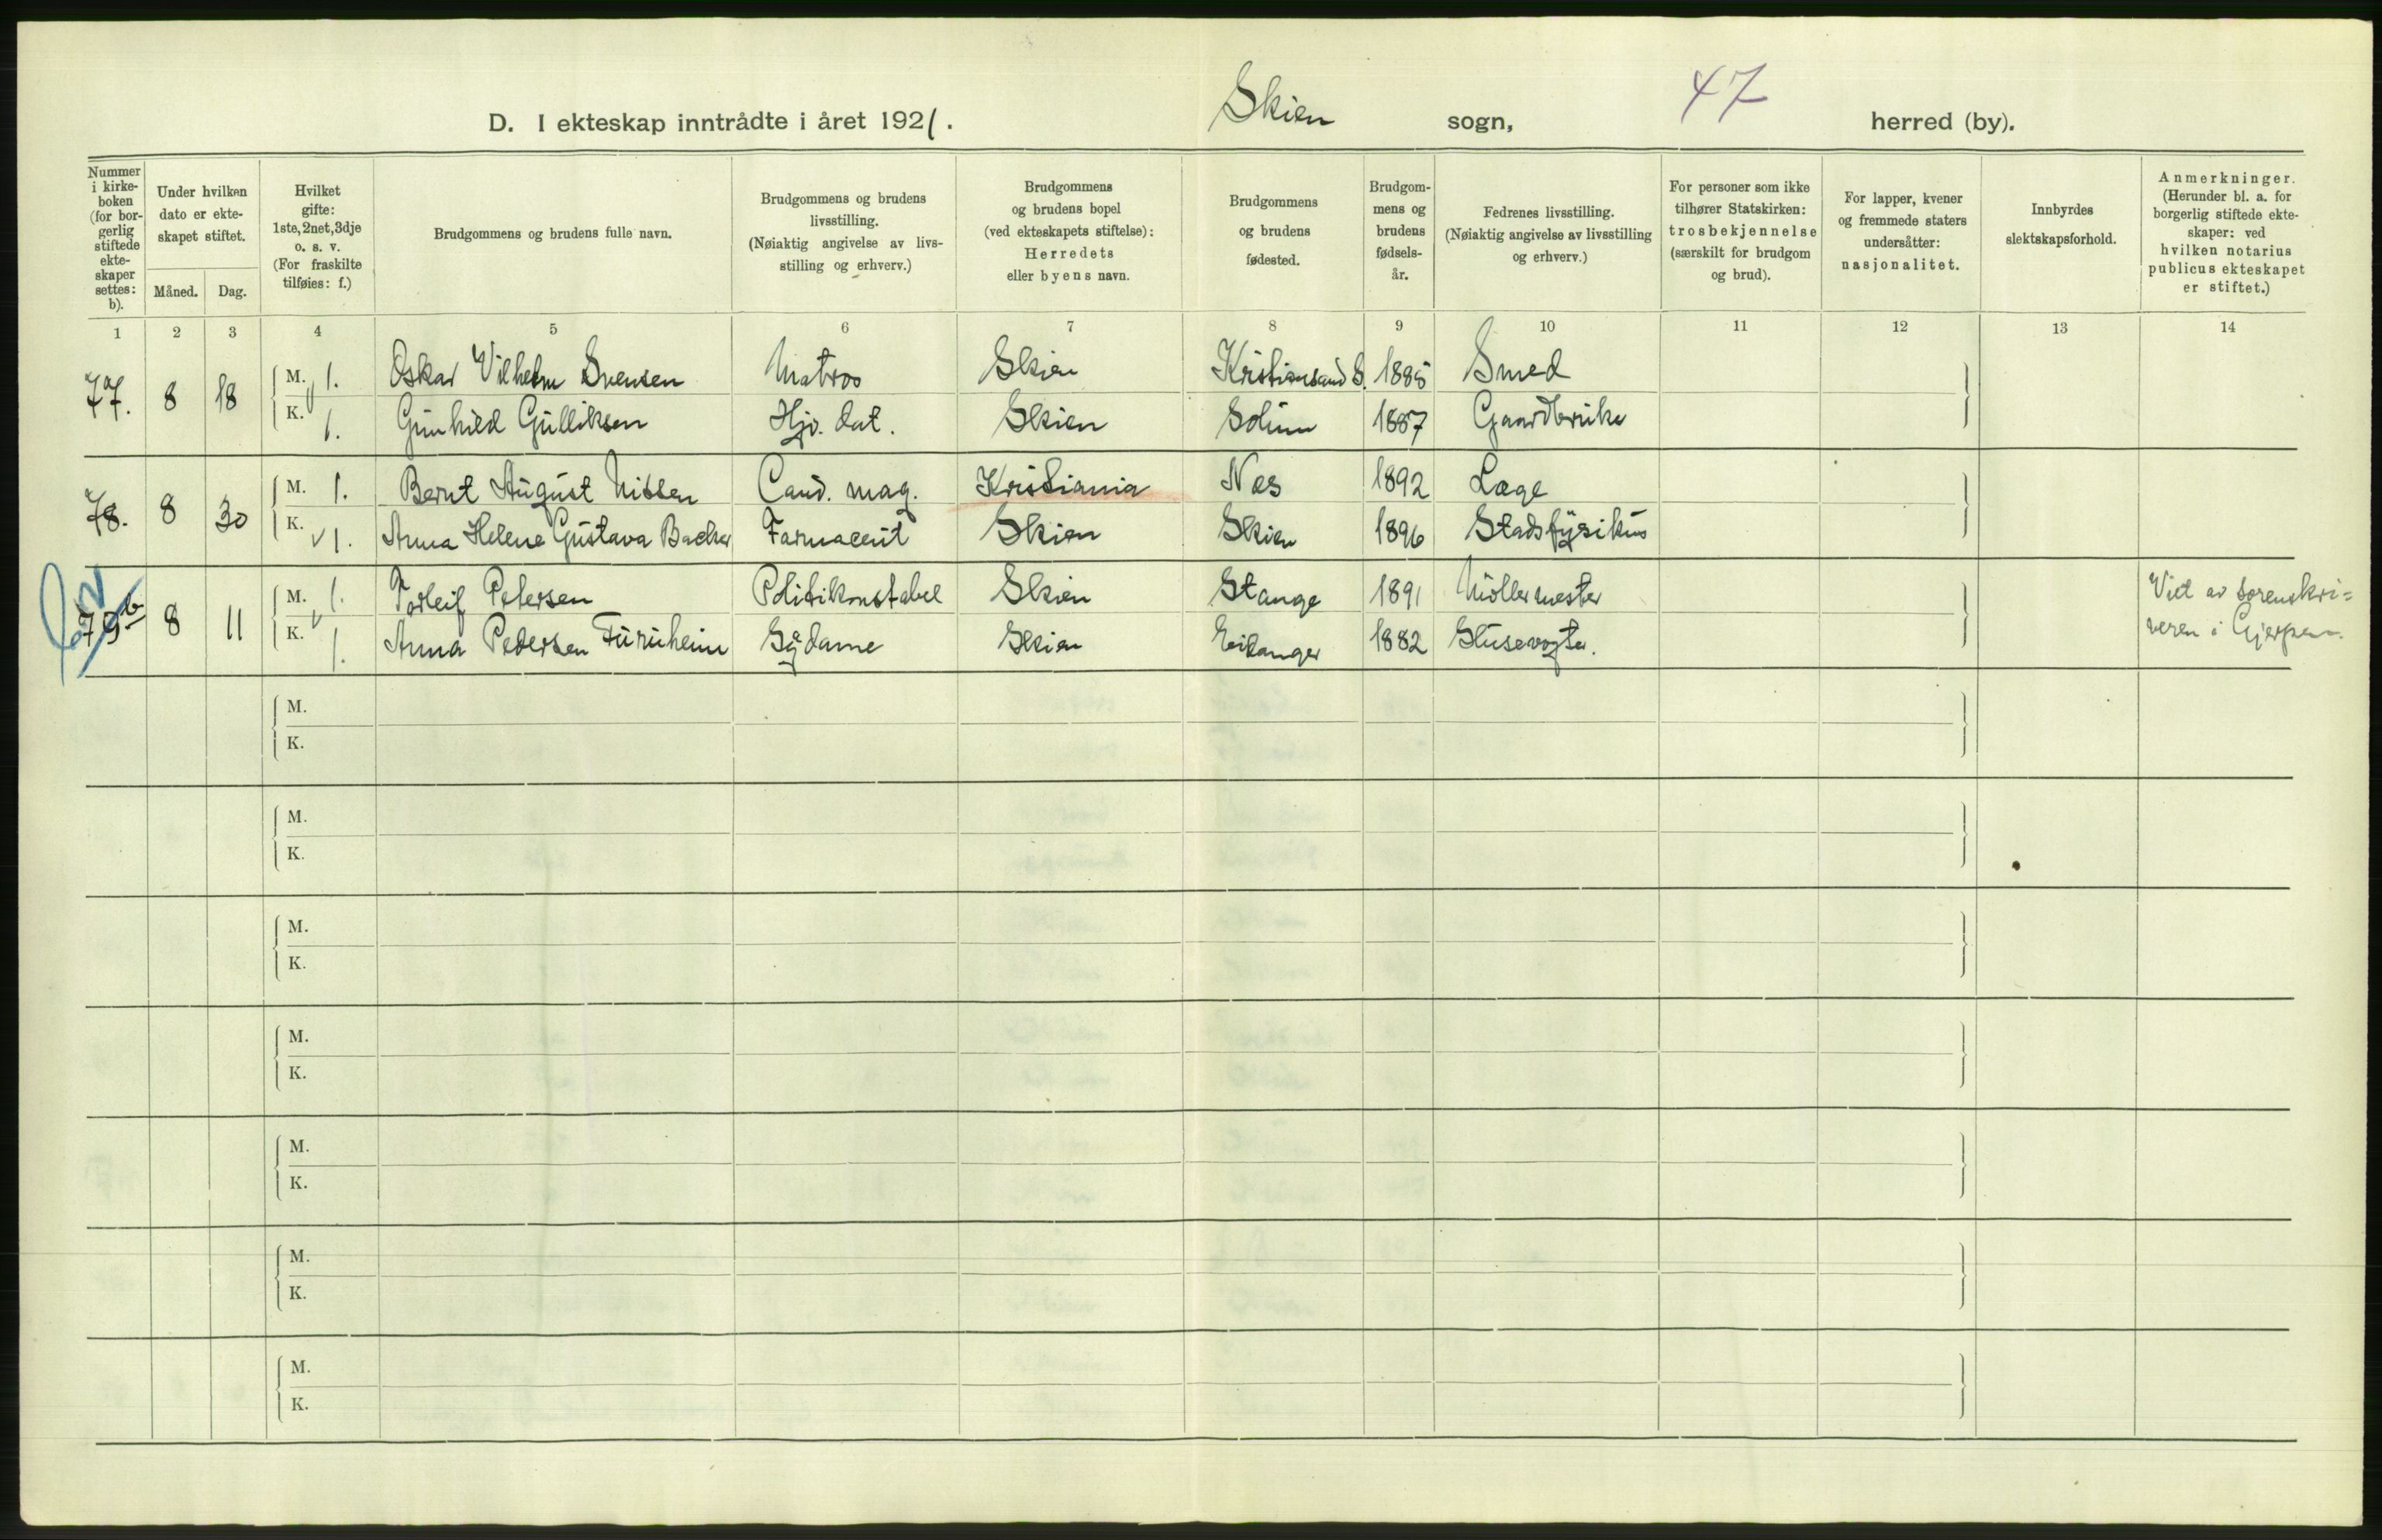 D. I ekteskap inntrådte i året 1921. Skien sogn, 47 herred (by).
Nummer i kirke-boken (for bor-gerlig stiftede ekte-skaper settes: b).
Under hvilken dato er ekte-skapet stiftet.
Måned. Dag.
Hvilket gifte: 1ste, 2net, 3dje o. s. v. (For fraskilte tilføies: f.)
Brudgommens og brudens fulle navn.
Brudgommens og brudens livsstilling. (Nøiaktig angivelse av livs-stilling og erhverv.)
Brudgommens og brudens bopel (ved ekteskapets stiftelse): Herredets eller byens navn.
Brudgommens og brudens fødested.
Brudgom-mens og brudens fødsels-år.
Fedrenes livsstilling. (Nøiaktig angivelse av livsstilling og erhverv.)
For personer som ikke tilhører Statskirken: trosbekjennelse (særskilt for brudgom og brud).
For lapper, kvener og fremmede staters undersåtter: nasjonalitet.
Innbyrdes slektskapsforhold.
Anmerkninger. (Herunder bl. a. for borgerlig stiftede ekte-skaper: ved hvilken notarius publicus ekteskapet er stiftet.)
1 2 3 4 5 6 7 8 9 10 11 12 13 14
77. 8 18 M. 1. Oskar Vilhelm Svensen Matros Skien Kristiansand S. 1885 Smed
K. 1. Gunhild Gulliksen Hjv. dat. Skien Solum 1887 Gaardbruke
78. 8 30 M. 1. Bernt August Nissen Cand. mag. Kristiania Nes 1892 Læge
K. 1. Anna Helene Gustava Backer Farmaceut Skien Skien 1896 Stadsfysikus
79 b 8 11 M. 1. Torleif Petersen Politikonstabel Skien Stange 1891 Möllermester Viet av sorenskri=
K. 1. Anna Pedersen Furuheim Sydame Skien Eidanger 1882 Slusevogter. veren i Gjerpen.
M.
K.
M.
K.
M.
K.
M.
K.
M.
K.
M.
K.
M.
K.